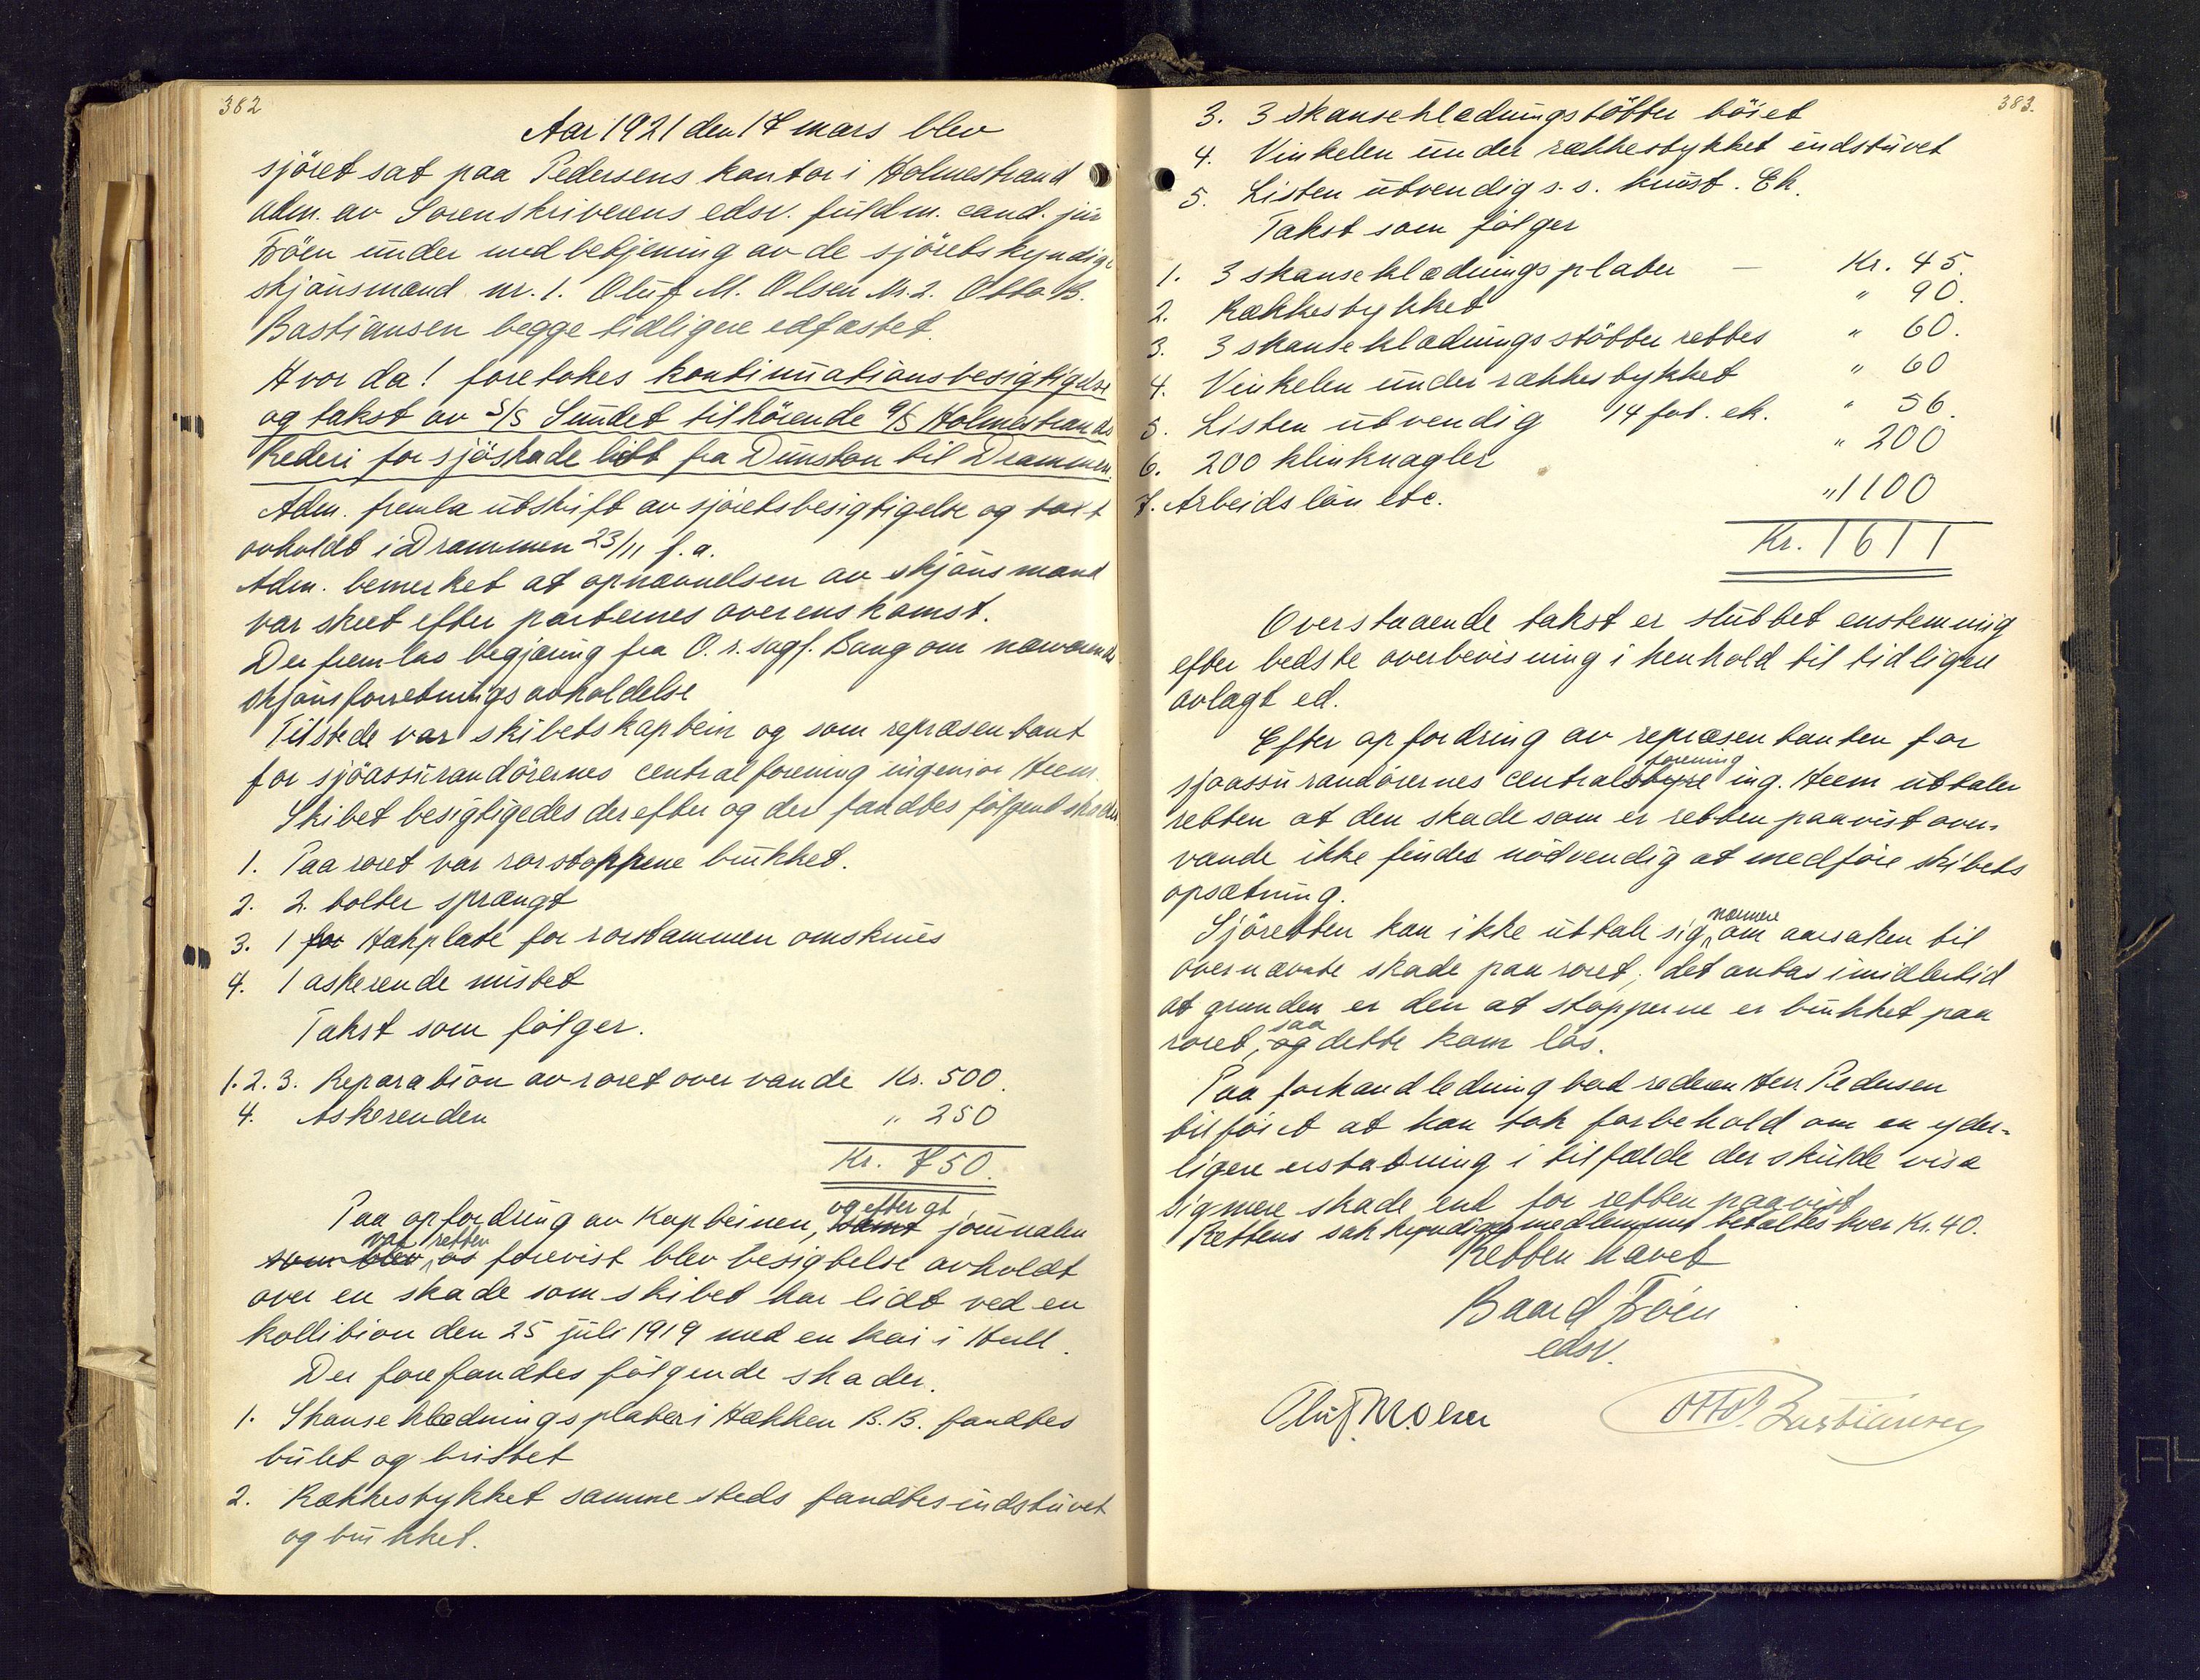 382
Aar 1921 den 17 mars blev
sjöret sat paa Pedersens kontor i Holmestrand
adm. av Sorenskriverens edsv. fuldm. cand. jur
Tröen under medbetjening av de sjöretskyndige
skjönsmænd nr. 1. Oluf M. Olsen Nr. 2. Otto B.
Bastiansen begge tidligere edfæstet.
Hvor da! foretokes kontinuationsbesigtigelse
og takst av S/S Sundet tilhörende A/S Holmestrands
Rederi for sjöskade lidt fra Dunston til Drammen.
Adm. fremla utskrift av sjöretsbesigtigelse og taxt
avholdt i Drammen 23/11 f.a.
Adm. bemerket at opnævnelsen av skjönsmænd
var skeet efter parternes overenskomst.
Der fremlaa begjæring fra O.r.sagf. Bang om nærværende
skjönsforretnings avholdelse
Tilstede var skibets kaptein og som repræsentant
for sjöassurandörernes centralforening ingeniör Heem.
Skibet besigtigedes derefter og der fandtes fölgend skader
1. Paa roret var rorstopperne bukket.
2. 2. bolter sprængt
3. 1 for Hakplate for rorstammen omskrues
4. 1 askerende mistet
Takst som fölger.
1. 2. 3. Reparation av roret over vande Kr. 500.
4. Askerenden " 250
Kr. 750.
og efter at
Paa opfordring av Kapteinen, samt journalen
var retten
som blev os forevist blev besigtelse avholdt
over en skade som skibet har lidt ved en
kollition den 25 juli 1919 med en kai i Hull.
Der forefandtes fölgende skader.
1. Skanseklædningsplater i Hækken B.B. fandtes
bulet og bristet
2. Rækkestykket samme steds fandtes indstuvet
og bukket.
383.
3. 3 skanseklædningstötter böiet
4. Vinkelen under rækkestykket indstuvet
5. Listen utvendig s.s. knust. Ek.
Takst som fölger
1. 3 skanseklædningsplater — Kr. 45.
2. Rækkestykket " 90.
3. 3 skanseklædningsstötter rettes " 60.
4. Vinkelen under rækkestykket " 60
5. Listen utvendig 14 fot. ek. " 56.
6. 200 klinknagler " 200
7. Arbeidslön etc. " 1100
Kr. 1611
Overstaaende takst er sluttet enstemmig
efter bedste overbevisning i henhold til tidligere
avlagt ed.
Efter opfordring av repræsentanten for
forening
sjöassurandörernes centralstyre ing. Heem uttaler
retten at den skade som er retten paavist over-
vande ikke findes nödvendig at medföre skibets
opsætning.
nærmere
Sjöretten kan ikke uttale sig om aarsaken til
overnævnte skade paa roret; det antas imidlertid
at grunden er den at stopperne er bukket paa
saa
roret, og dette kom lös.
Paa forhandledning bad rederen Herr Pedersen
tilföiet at han tok forbehold om en yder-
ligere erstatning i tilfælde der skulde vise
sig mere skade end for retten paavist
Rettens sakkyndige medlemmer betaltes hver Kr. 40.
Retten hævet
Baard Tröen
edsv.
Oluf M Olsen
Otto B. Bastiansen